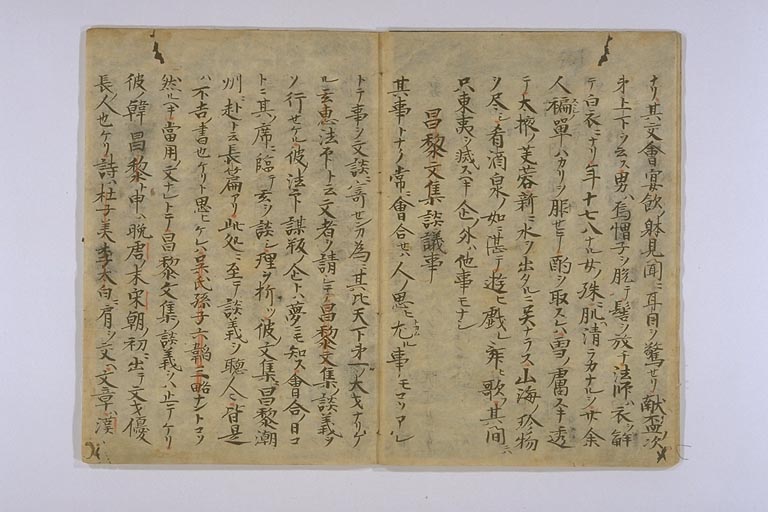 ナリ其交會宴飲ノ躰見聞ニ耳目ヲ驚セリ献盃ノ次
第上下ヲ云ス男ハ烏帽子ヲ脱テ髻ヲ放チ法師ハ衣ヲ解
テ白衣ニナリ年十七八ナル女ノ殊ニ肌清ラカナルヲ廿余
人褊單ハカリヲ服セテ酌ヲ取スレハ雪ノ膚スキ透
テ大液ノ芙蓉新ニ水ヲ出タルニ異ナラス山海ノ珎物
ヲ尽シ肴酒泉ノ如ニ湛テ遊ヒ戯レ舞ヒ歌フ其間ニハ
只東夷ヲ滅スヘキ企ノ外ハ他事モナシ
昌黎文集談議事
其事トナク常ニ會合セハ人ノ思ヒ尤ル事ヲモコソアレ
トテ事ヲ文談ニ寄セン為ニ其比天下第一ノ大才ナリケ
ル玄恵法下ト云文者ヲ請シテ昌黎文集ノ談義ヲ
ソ行セケル彼法下謀叛ノ企トハ夢ニモ知ス會合ノ日コ
トニ其席ニ臨テ玄ヲ談シ理ヲ折ク彼文集ニ昌黎潮
州ニ赴ト云長篇アリ此処ニ至テ談義ヲ聴人々皆是
ハ不吉書也ケリト思ヒケレハ呉氏孫子六韜三略ナントコソ
然ルヘキ當用ノ文ナレトテ昌黎文集ノ談義ヲハ止テケリ
彼韓昌黎ト申ハ晩唐ノ末宋朝ノ初ニ出テ文才優
長ノ人也ケリ詩ハ杜子美李太白ニ肩ヲ文ハ文章ハ漢